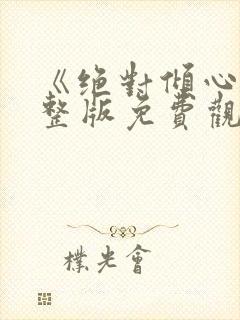 《绝對傾心
整版免費觀
樸光會